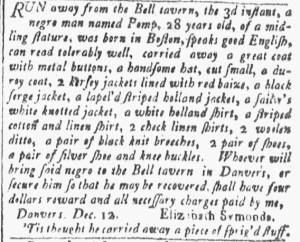 RUN away from the Bell tavern, the 3d inſtant, a
negro man named Pomp, 28 years old, of a mid-
ling ſtature, was born in Boſton, ſpeaks good Engliſh,
can read tolerably well, carried away a great coat
with metal buttons, a handſome hat, cut ſmall, a du-
roy coat, 2 kerſey jackets lined with red baize, a black
ſerge jacket, a lapel'd ſtriped holland jacket, a ſailor's
white knotted jacket, a white holland ſhirt, a ſtriped
cotton and linen ſhirt, 2 check linen ſhirts, 2 woolen
ditto, a pair of black knit breeches, 2 pair of ſhoes,
a pair of ſilver ſhoe and knee buckles. Whoever will
bring ſaid negro to the Bell tavern in Danvers, or
ſecure him ſo that he may be recovered, ſhall have four
dollars reward and all neceſſary charges paid by me,
Danvers. Dec. 12. Elizabath Symonds.
'Tis thought he carried away a piece of ſprig'd ſtuff.